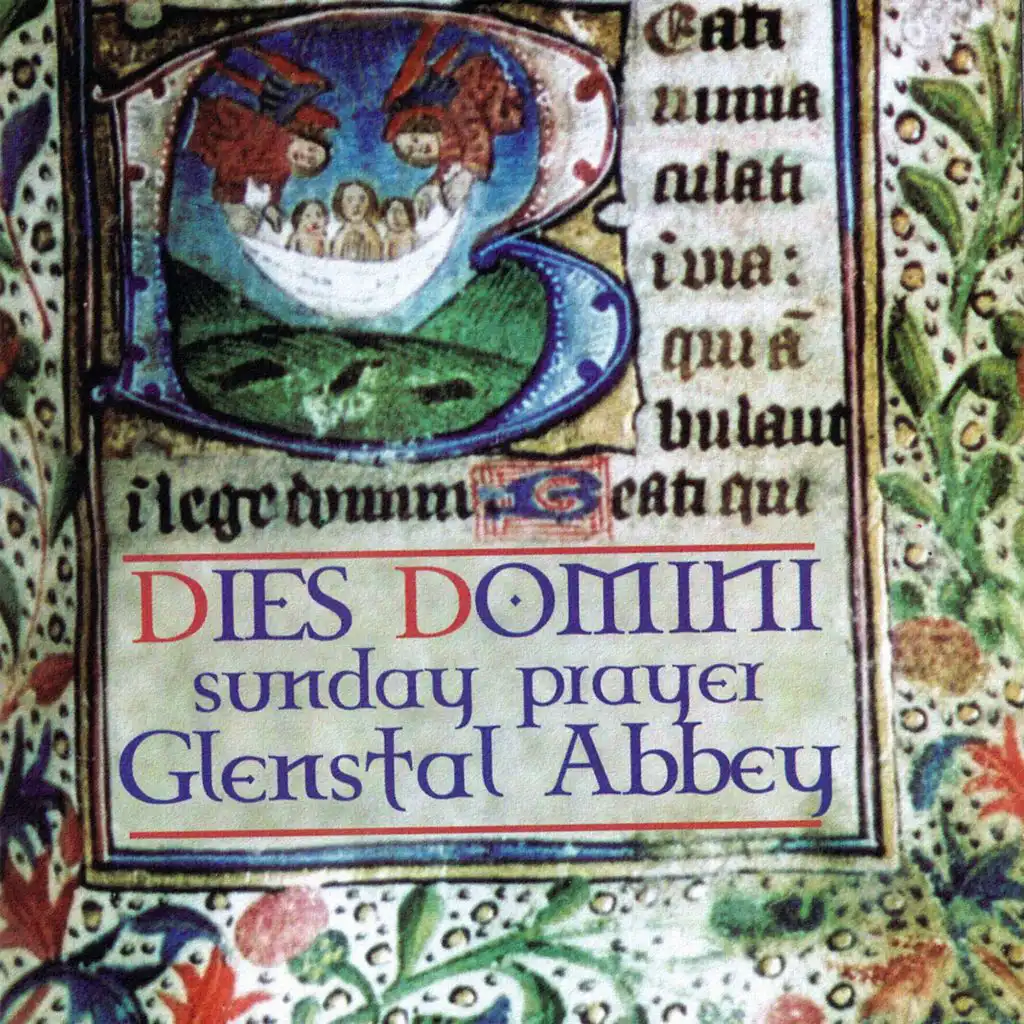 BEati
imma
culati
ī via:
qui ā
bulant
ī lege domini Beati qui
DIES DOMINI
sunday prayer
Glenstal Abbey